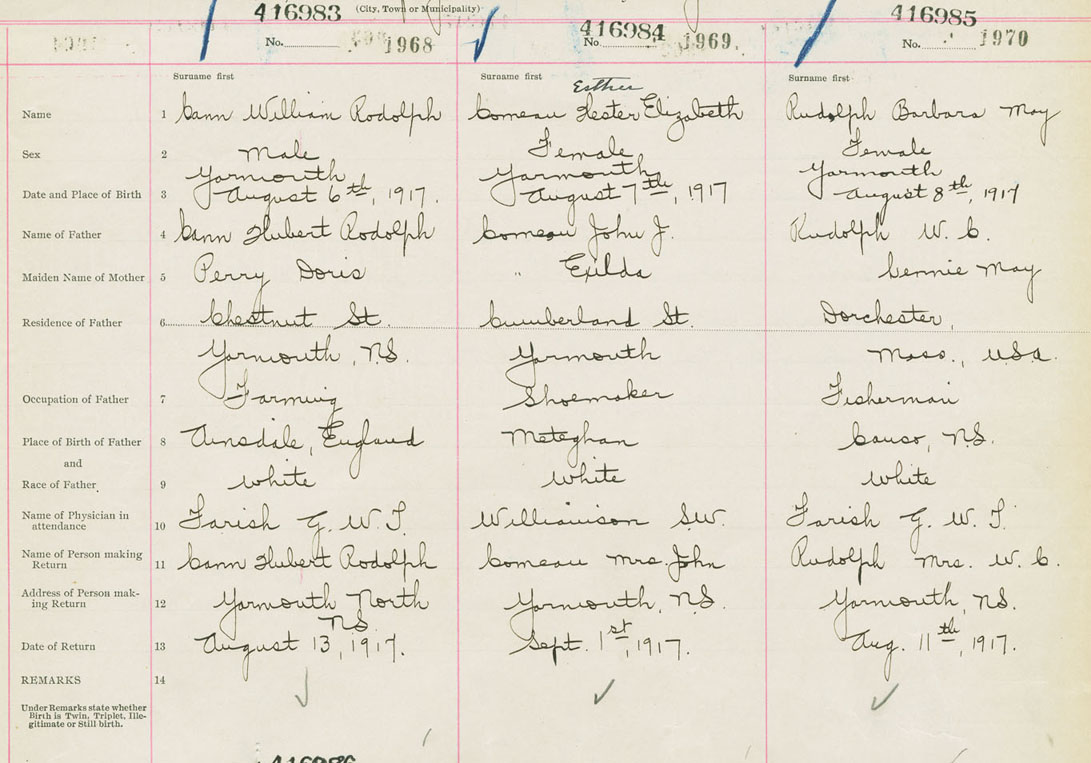 416983 (City, Town or Municipality) 416984 416985
No. 1968 No. 1969. No. 1970
Surname first Surname first Surname first
Esther
Name 1 Cann William Rodolph Comeau Hester Elizabeth Rudolph Barbara May
Sex 2 Male Female Female
Yarmouth Yarmouth Yarmouth
Date and Place of Birth 3 August 6th, 1917. August 7th, 1917 August 8th, 1917
Name of Father 4 Cann Hubert Rodolph Comeau John J. Rudolph W. C.
Maiden Name of Mother 5 Perry Doris " Exilda Bennie May
Residence of Father 6 Chestnut St. Cumberland St. Dorchester,
Yarmouth, NS. Yarmouth Mass., USA.
Occupation of Father 7 Farming Shoemaker Fisherman
Place of Birth of Father 8 Ainsdale, England Meteghan Canso, NS.
and
Race of Father 9 white white white
Name of Physician in
attendance 10 Farish G. W. T. Williamson S.W. Farish G. W. T.
Name of Person making
Return 11 Cann Hubert Rodolph Comeau Mrs. John Rudolph Mrs. W. C.
Address of Person mak-
ing Return 12 Yarmouth North Yarmouth, NS. Yarmouth, NS.
NS
Date of Return 13 August 13, 1917. Sept. 1st, 1917. Aug. 11th, 1917.
REMARKS 14
Under Remarks state whether
Birth is Twin, Triplet, Ille-
gitimate or Still birth.
416986